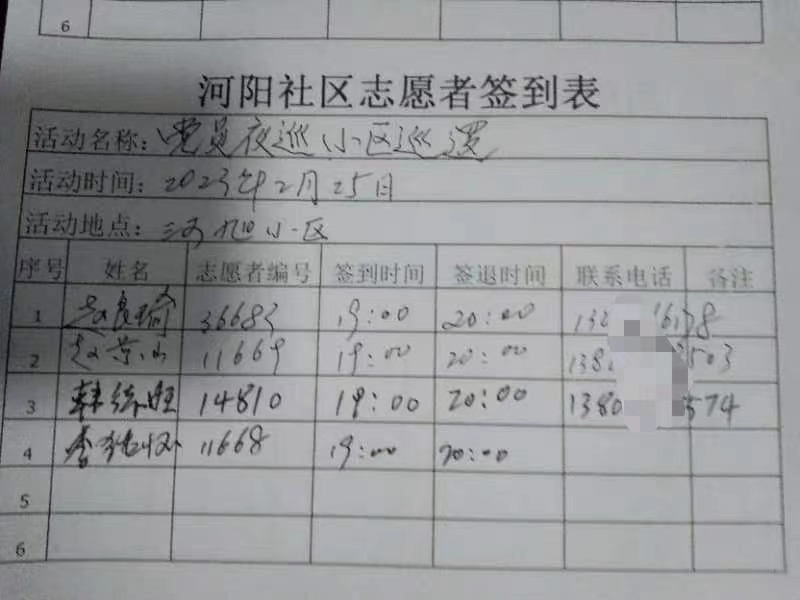 6
河阳社区志愿者签到表
活动名称：党员夜巡小区巡逻
活动时间：2023年2月25日
活动地点：河旭小区
序号 姓名 志愿者编号 签到时间 签退时间 联系电话 备注
1 赵良瑜 36683 19:00 20:00
2 赵京山 11669 19:00 20:00 503
3 韩 14810 19:00 20:00 1380 574
4 李 11668 19:00 20:00
5
6